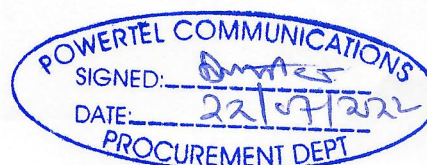 POWERTEL COMMUNICATIONS
SIGNED:
DATE: 22/07/2022
PROCUREMENT DEPT